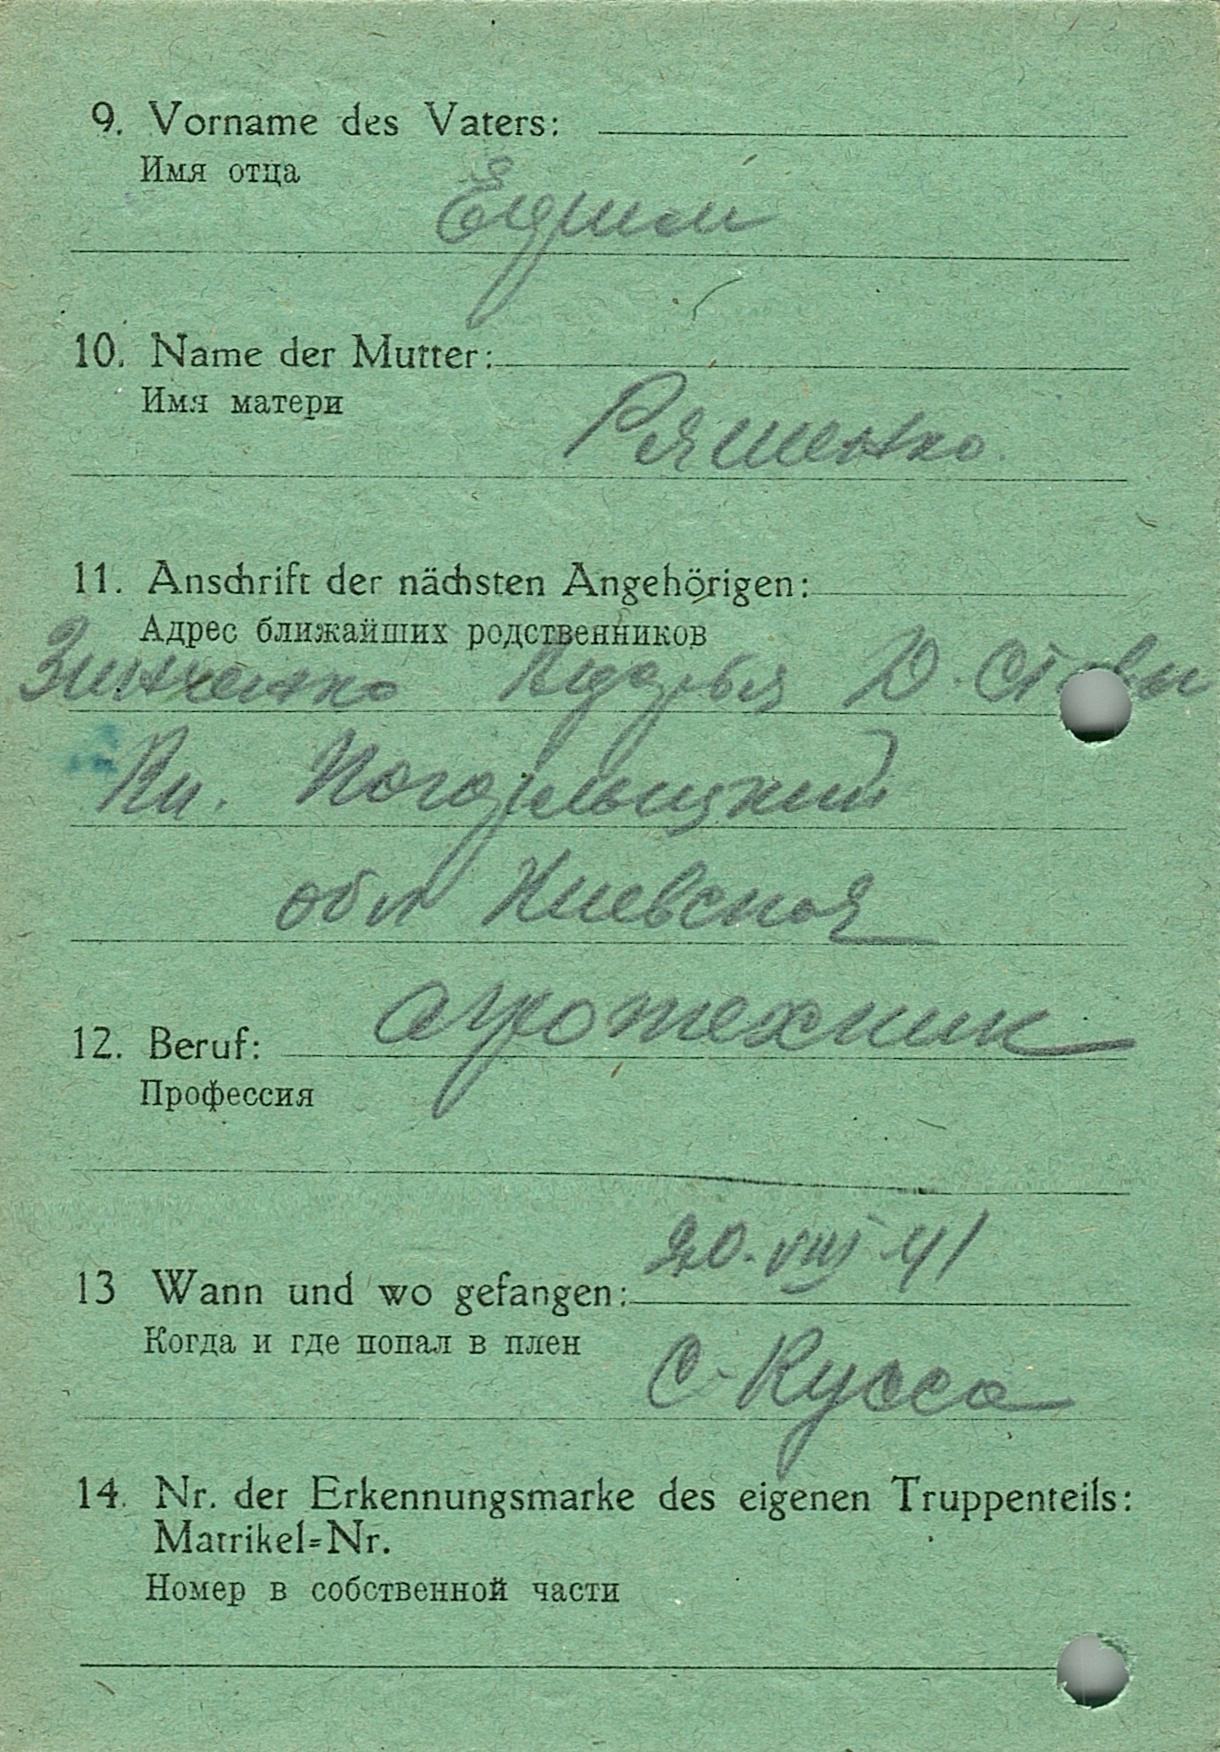 9. Vorname des Vaters:
Имя отца
10. Name der Mutter:
Имя матери
Ряшенко
11. Anschrift der nächsten Angehörigen:
Адрес ближайших родственников
Зинченко
обл Киевская
агротехник
12. Beruf:
Профессия
20. VIII 41
13 Wann und wo gefangen:
Когда и где попал в плен
С. Кусса
14. Nr. der Erkennungsmarke des eigenen Truppenteils:
Matrikel=Nr.
Номер в собственной части